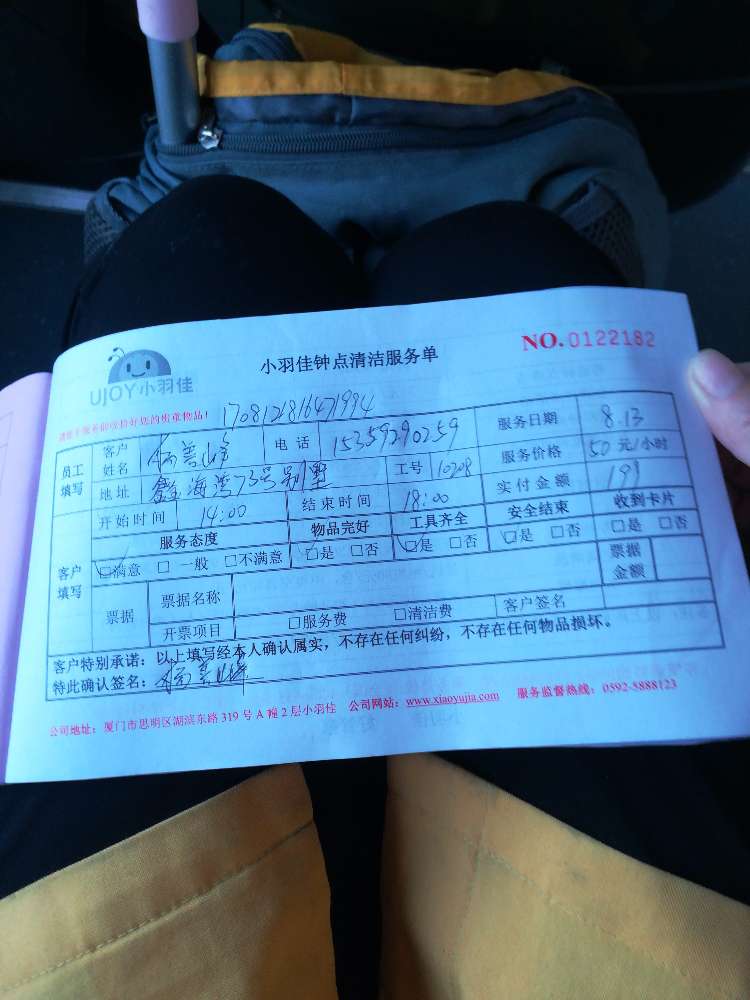 UJOY小羽佳
小羽佳钟点清洁服务单
NO. 0122182
170812816471994
员工填写 客户姓名 电话 15359290259 服务日期 8.13
地址 海湾73号别墅 工号 10208 服务价格 50元/小时
开始时间 14:00 结束时间 18:00 实付金额 199
客户填写 服务态度 物品完好 工具齐全 安全结束 收到卡片
☑满意 □一般 □不满意 ☑是 □否 ☑是 □否 ☑是 □否 □是 □否
票据 票据名称 票据金额
开票项目 □服务费 □清洁费 客户签名
客户特别承诺：以上填写经本人确认属实，不存在任何纠纷，不存在任何物品损坏。
特此确认签名：
公司地址：厦门市思明区湖滨东路 319 号 A 幢 2 层小羽佳 公司网站：www.xiaoyujia.com 服务监督热线：0592-5888123